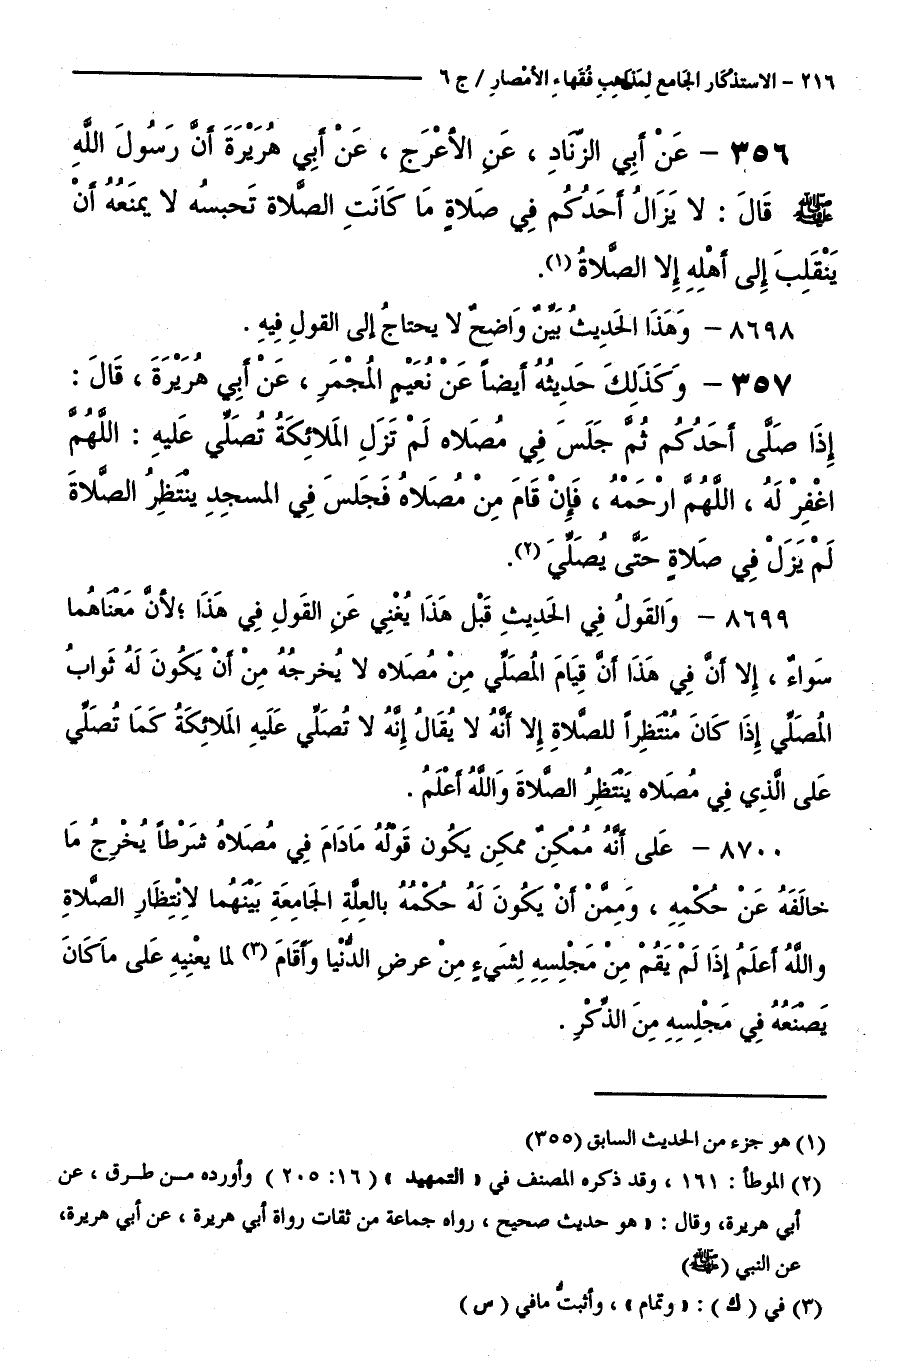 ٢١٦ - الاستذكار الجامع لمذاهب فقهاء الأمصار / ج ٦
٣٥٦ - عَنْ أَبِي الزِّنَادِ ، عَنِ الأَعْرَجِ ، عَنْ أَبِي هُرَيْرَةَ أَنَّ رَسُولَ اللَّهِ
ﷺ قَالَ : لا يَزَالُ أَحَدُكُم فِي صَلاةٍ مَا كَانَتِ الصَّلاة تَحبسُه لا يمنَعُهُ أنْ
يَنْقَلِبَ إِلى أهْلِهِ إِلا الصَّلاةُ (١).
٨٦٩٨ - وَهَذَا الحَديثُ بَيِّنٌ وَاضحٌ لا يحتاجُ إلى القولِ فِيهِ .
٣٥٧ - وَكَذَلِكَ حَديثهُ أيضاً عَنْ نُعَيْمٍ المُجْمَرِ ، عَنْ أَبِي هُرَيْرَةَ ، قَالَ :
إِذَا صَلَّى أحَدُكُم ثُمَّ جَلَسَ فِي مُصَلاه لَمْ تَزَلِ المَلائِكَةُ تُصَلِّي عَليهِ : اللَّهُمَّ
اغْفِرْ لَهُ ، اللَّهُمَّ ارْحَمْهُ ، فَإِنْ قَامَ مِنْ مُصَلاهُ فَجَلسَ فِي المسجدِ ينْتَظِرُ الصَّلاةَ
لَمْ يَزَلْ فِي صَلاةٍ حَتَّى يُصَلِّيَ (٢).
٨٦٩٩ - وَالقولُ فِي الحَديثِ قَبْل هَذَا يُغْنِي عَنِ القَولِ فِي هَذَا ؛لأنَّ مَعْنَاهُما
سَواءٌ ، إِلا أنَّ فِي هَذَا أنَّ قِيَامَ المُصَلِّي مِنْ مُصَلاه لا يُخرجُهُ مِنْ أنْ يَكُونَ لَهُ ثَوابُ
المُصَلِّي إِذَا كَانَ مُنْتَظِراً للصَّلاةِ إِلا أنَّهُ لا يُقَالُ إِنَّهُ لا تُصَلِّي عَلَيهِ المَلائِكَةُ كَمَا تُصَلِّي
عَلى الَّذِي فِي مُصَلاه يَنْتَظِرُ الصَّلاةَ وَاللَّهُ أعْلَمُ .
٨٧٠٠ - عَلى أنَّهُ مُمْكِنٌ ممكِن يَكُون قَوْلُهُ مَادَامَ فِي مُصَلاهُ شَرْطاً يُخْرِجُ مَا
خالَفَهُ عَنْ حُكْمِهِ ، وَمِمَّنْ أنْ يَكُونَ لَهُ حُكْمُهُ بالعِلَّةِ الجَامعَةِ بَيْنَهُما لانْتِظَارِ الصَّلاةِ
واللَّهُ أعلَمُ إذَا لَمْ يَقُمْ مِنْ مَجْلِسِهِ لِشَيءٍ مِنْ عرضِ الدُّنْيا وأَقَامَ (٣) لما يعْنِيهِ عَلى ماكَانَ
يَصْنَعُهُ فِي مَجْلِسِهِ مِنَ الذِّكْرِ .
(١) هو جزء من الحديث السابق (٣٥٥)
(٢) الموطأ : ١٦١ ، وقد ذكره المصنف في « التمهيد » (١٦: ٢٠٥) وأورده من طرق ، عن
أبي هريرة، وقال : « هو حديث صحيح ، رواه جماعة من ثقات رواة أبي هريرة ، عن أبي هريرة،
عن النبي (ﷺ)
(٣) في ( ك ) : « وتمام » ، وأثبتُّ مافي ( س )